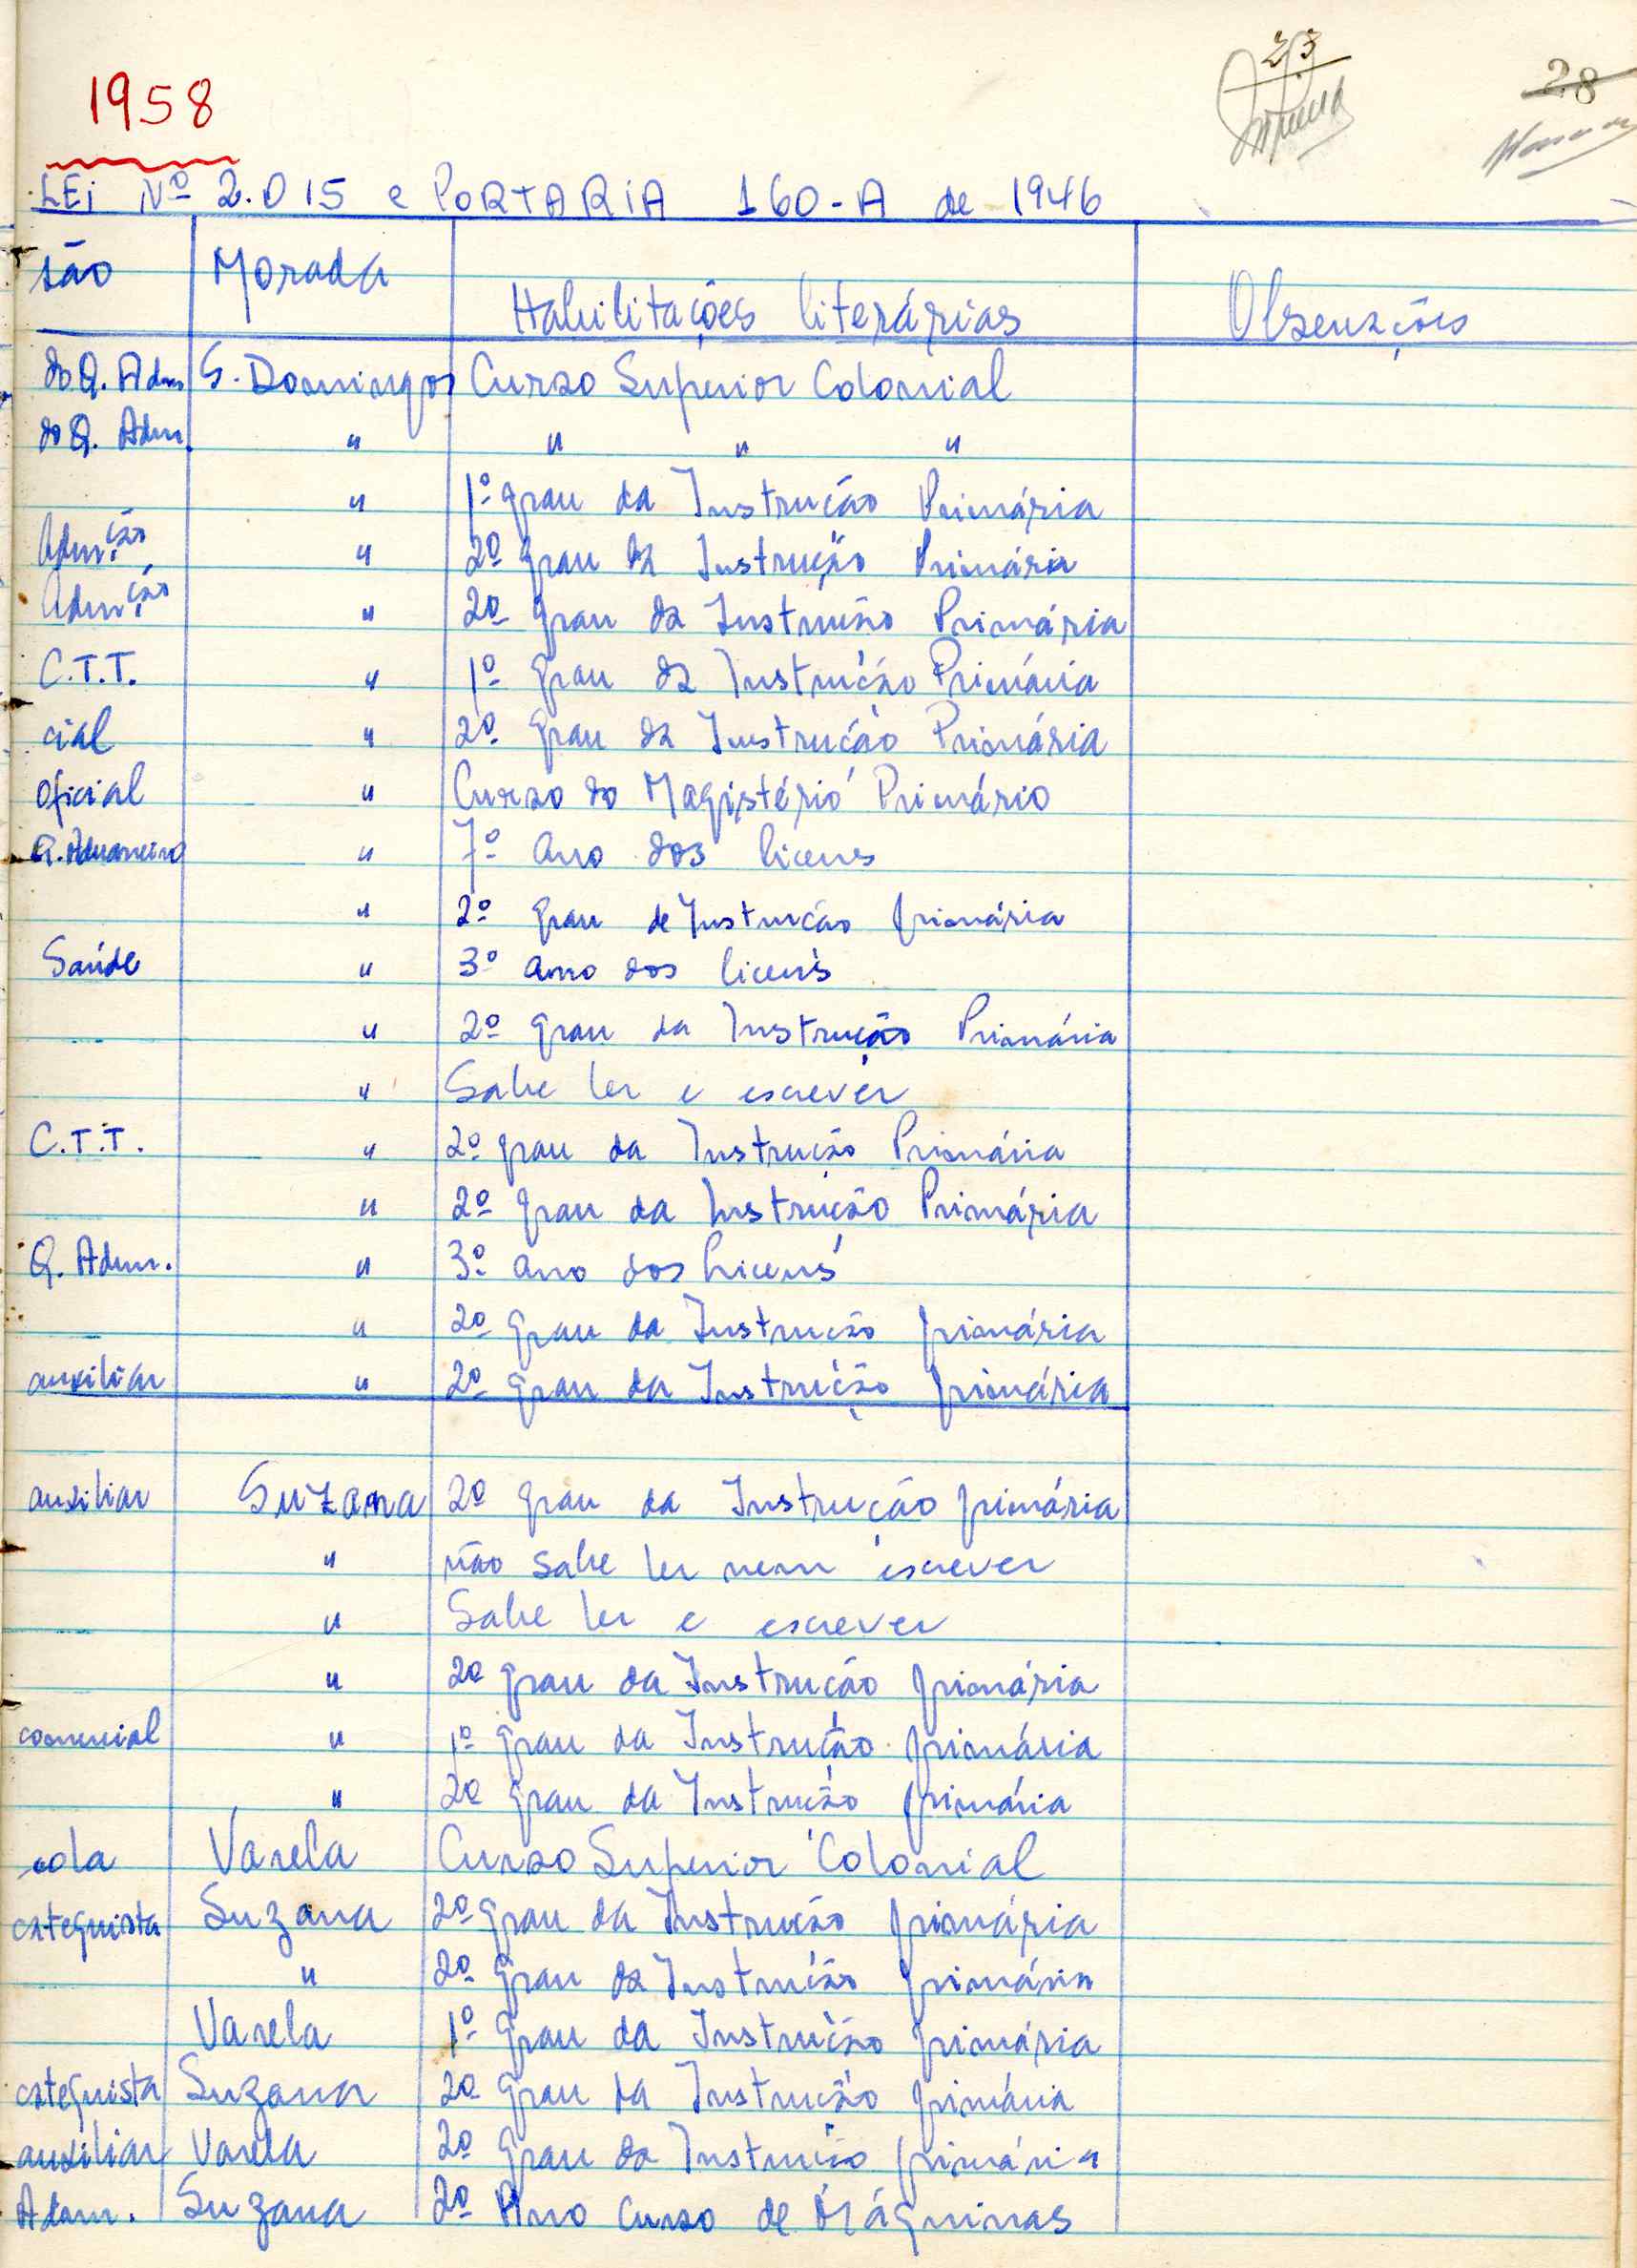 23
28
1958
LEi Nº 2.015 e PORTARIA 160-A de 1946
são Morada Habilitações literárias Observações
do Q. Adm S. Domingos Curso Superior Colonial
do Q. Adm. " " " "
" 1º grau da Instrução Primária
Adm.ção " 2º grau da Instrução Primária
Adm.ção " 2º grau da Instrução Primária
C.T.T. " 1º grau da Instrução Primária
cial " 2º grau da Instrução Primária
oficial " Curso do Magistério Primário
Q. Aduaneiro " 7º ano dos liceus
" 2º grau de Instrução primária
Saúde " 3º ano dos liceus
" 2º grau da Instrução Primária
" Sabe ler e escrever
C.T.T. " 2º grau da Instrução Primária
" 2º grau da Instrução Primária
Q. Adm. " 3º ano dos liceus
" 2º grau da Instrução primária
auxiliar " 2º grau da Instrução primária
auxiliar Suzana 2º grau da Instrução primária
" não sabe ler nem escrever
" Sabe ler e escrever
" 2º grau da Instrução primária
comercial " 1º grau da Instrução primária
" 2º grau da Instrução primária
cola Varela Curso Superior Colonial
catequista Suzana 2º grau da Instrução primária
" 2º grau da Instrução primária
Varela 1º grau da Instrução primária
catequista Suzana 2º grau da Instrução primária
auxiliar Varela 2º grau da Instrução primária
Adam. Suzana 2º Ano Curso de Máquinas